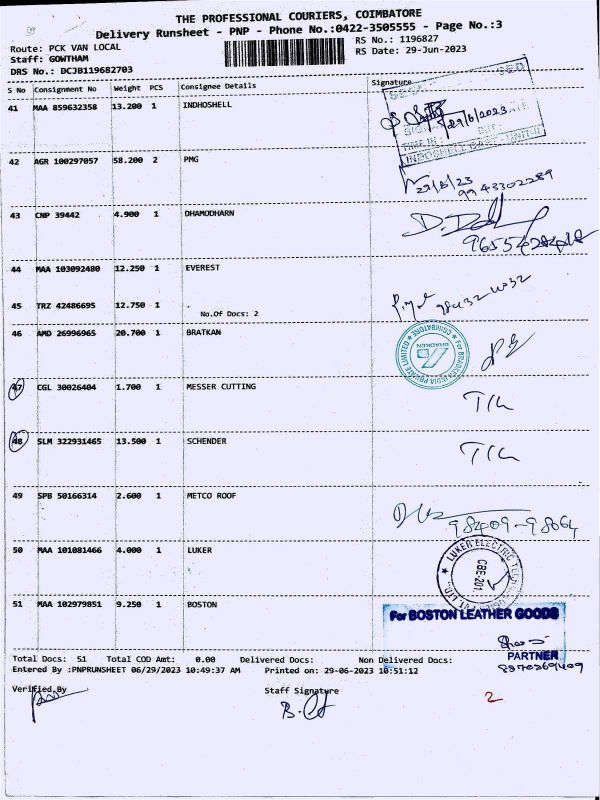 THE PROFESSIONAL COURIERS, COIMBATORE
Delivery Runsheet - PNP - Phone No.:0422-3505555 - Page No.:3
Route: PCK VAN LOCAL
RS No.: 1196827
Staff: GOWTHAM
RS Date: 29-Jun-2023
DRS No.: DCJB119682703
S No Consignment No Weight PCS Consignee Details Signature
41 MAA 859632358 13.200 1 INDHOSHELL
29/6/2023
42 AGR 100297057 58.200 2 PMG
29/6/23
9943302289
43 CNP 39442 4.900 1 DHAMODHARN
44 MAA 103092480 12.250 1 EVEREST
45 TRZ 42486695 12.750 1
No.Of Docs: 2
46 AMD 26996965 20.700 1 BRATKAN
For BRADKEN INDIA PRIVATE LIMITED COIMBATORE
BRADKEN
47 CGL 30026404 1.700 1 MESSER CUTTING
48 SLM 322931465 13.500 1 SCHENDER
49 SPB 50166314 2.600 1 METCO ROOF
98409-98064
50 MAA 101081466 4.000 1 LUKER
LUKER ELECTRIC
CBE-201
51 MAA 102979851 9.250 1 BOSTON
For BOSTON LEATHER GOODS
PARTNER
Total Docs: 51 Total COD Amt: 0.00 Delivered Docs: Non Delivered Docs:
Entered By :PNPRUNSHEET 06/29/2023 10:49:37 AM Printed on: 29-06-2023 10:51:12
Verified By
Staff Signature
2